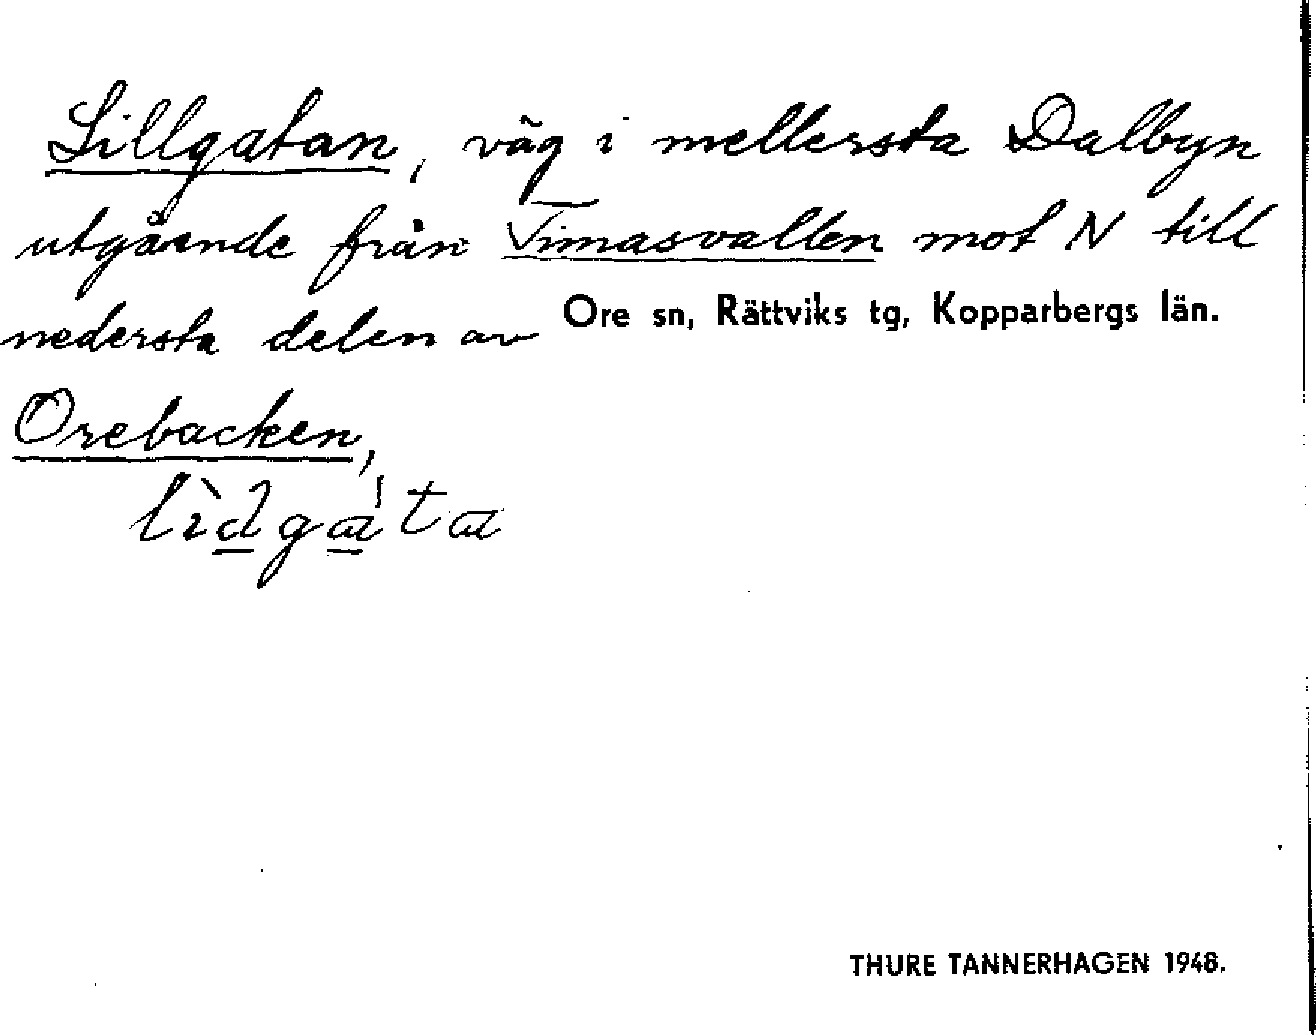 Lillgatan, väg i mellersta Dalbyn
utgående från Timasvallen mot N till
nedersta delen av
Ore sn, Rättviks tg, Kopparbergs län.
Orebacken,
THURE TANNERHAGEN 1948.